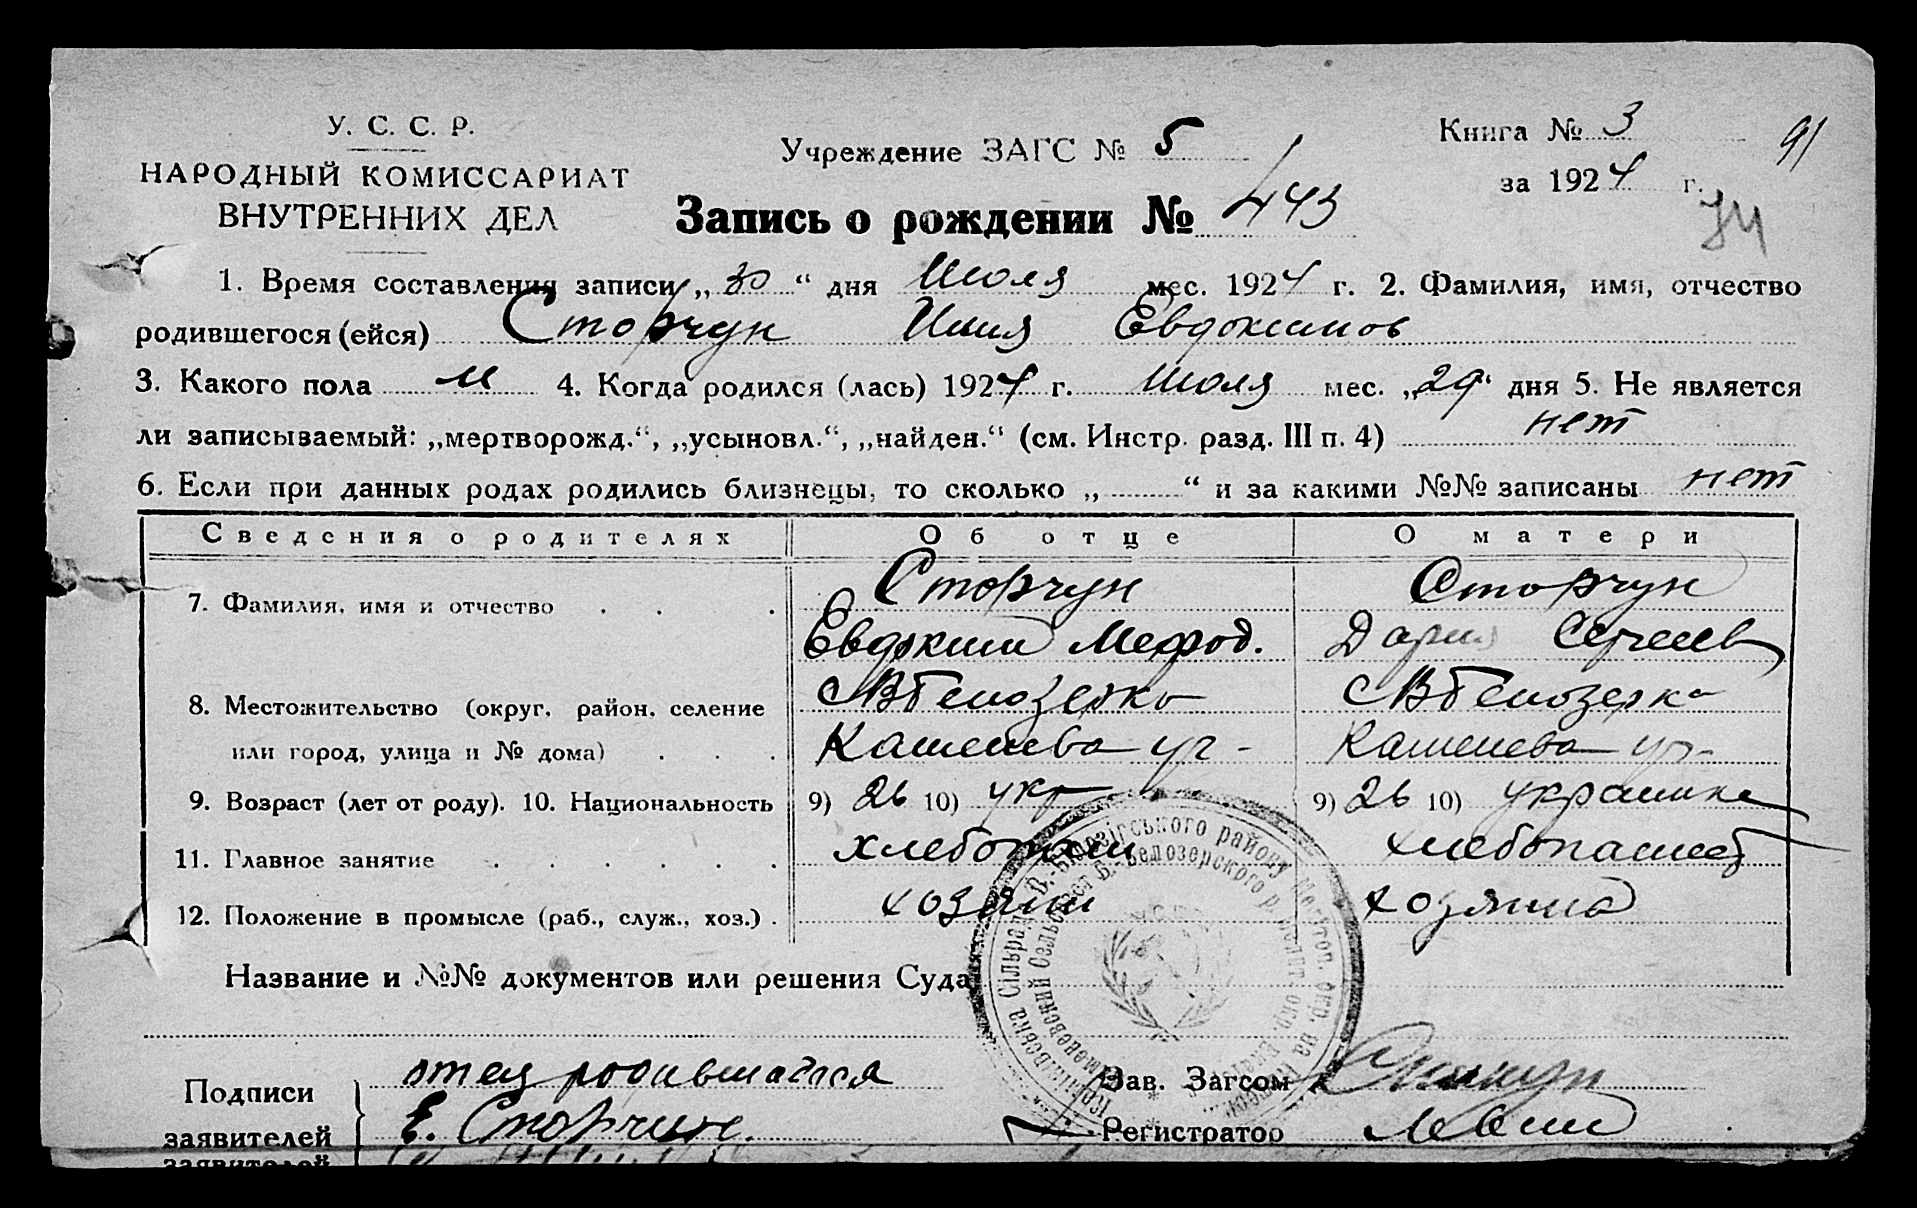 У. С. С. Р.
НАРОДНЫЙ КОМИССАРИАТ
ВНУТРЕННИХ ДЕЛ
Учреждение ЗАГС № 5
Книга № 3
91
за 1924 г.
74
Запись о рождении № 443
1. Время составления записи „30“ дня Июля мес. 1924 г. 2. Фамилия, имя, отчество
родившегося (ейся) Сторчун Илия Евдокимов
3. Какого пола м 4. Когда родился (лась) 1924 г. Июля мес. „29“ дня 5. Не является
ли записываемый: „мертворожд.“, „усыновл.“, „найден.“ (см. Инстр. разд. III п. 4) нет
6. Если при данных родах родились близнецы, то сколько „ “ и за какими №№ записаны нет
Сведения о родителях Об отце О матери
7. Фамилия, имя и отчество Сторчун Сторчун
Евдоким Мефод. Дария
8. Местожительство (округ, район, селение с В Белозерка с В Белозерка
или город, улица и № дома)
9. Возраст (лет от роду). 10. Национальность 9) 26 10) укр 9) 26 10) украинка
11. Главное занятие хлебопаш хлебопашец
12. Положение в промысле (раб., служ., хоз.) хозяин хозяина
Название и №№ документов или решения Суда
Подписи заявителей
отец родившагося
Е. Сторчун.
Зав. Загсом
Регистратор
заявителей